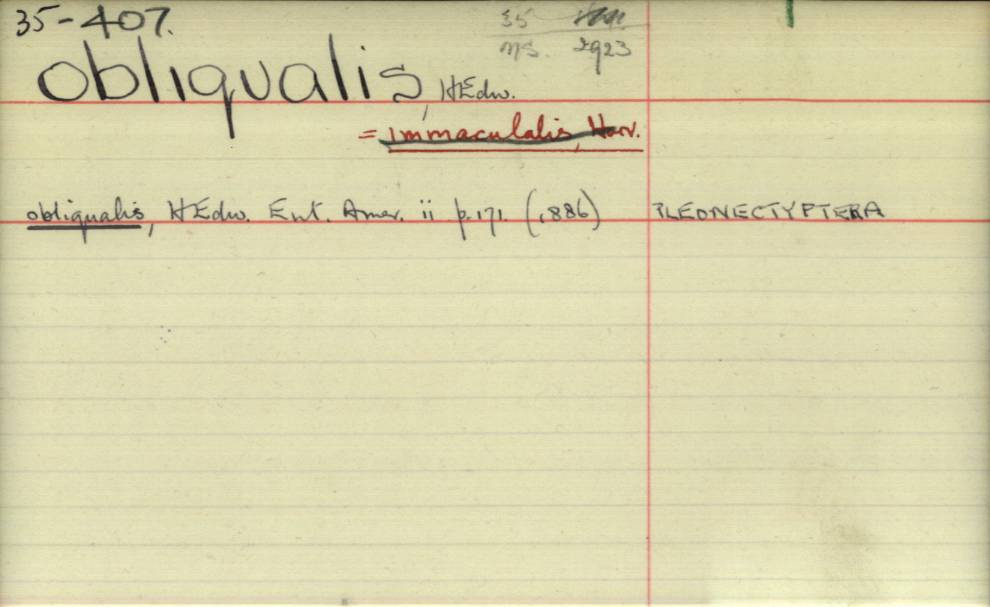 35-407.
35
ms. 2923
obliqualis, HEdw.
= immaculalis, Harv.
obliqualis, HEdw. Ent. Amer. ii p.171. (1886) PLEONECTYPTERA